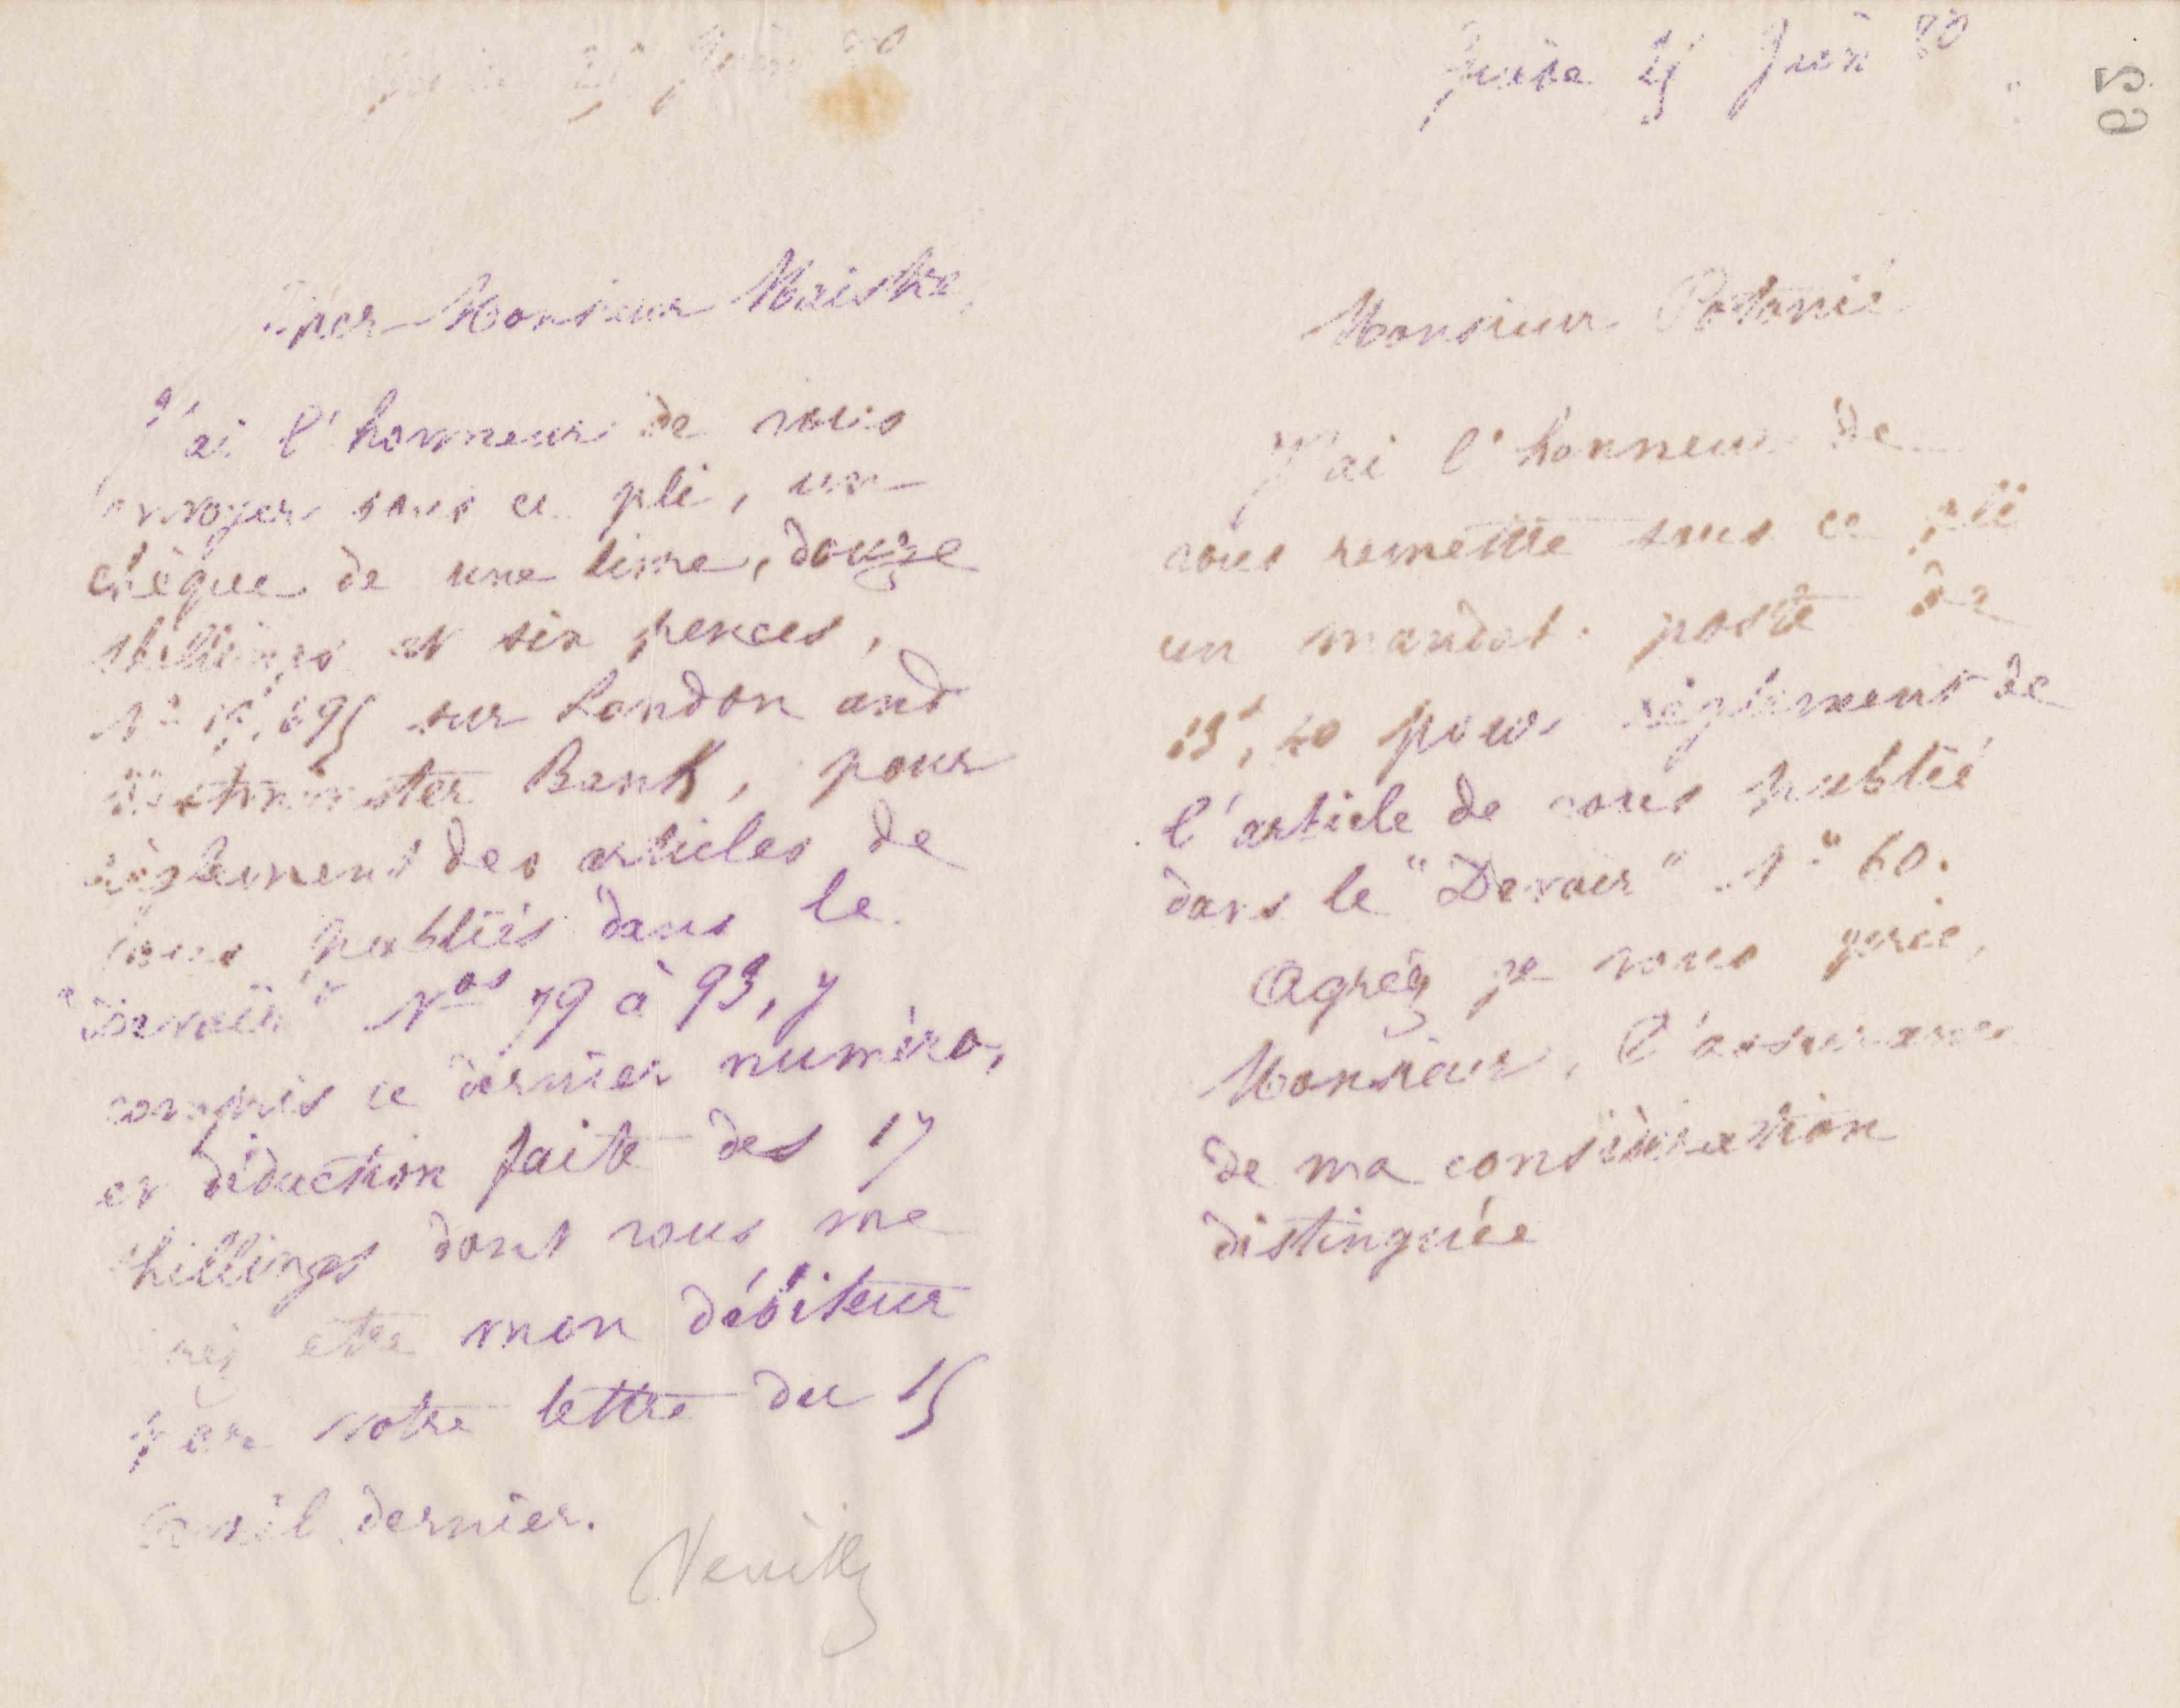 Guise 25 Juin 80
Cher Monsieur Maistre,
J'ai l'honneur de vous
envoyer sous ce pli, un
chèque de une livre, douze
shillings et six pences,
sur London and
Westminster Bank, pour
règlement des articles de
vous publiés dans le
"Devoir" Nos 79 à 93, y
compris ce dernier numéro,
et déduction faite des 17
shillings dont vous me
être mon débiteur
par votre lettre du 15
avril dernier.
Neuilly
59
Guise 25 Juin 80
Monsieur Potonié
J'ai l'honneur de
vous remettre sous ce pli
un mandat-poste de
pour règlement de
l'article de vous publié
dans le "Devoir" No 60.
Agréez je vous prie,
Monsieur, l'assurance
de ma considération
distinguée